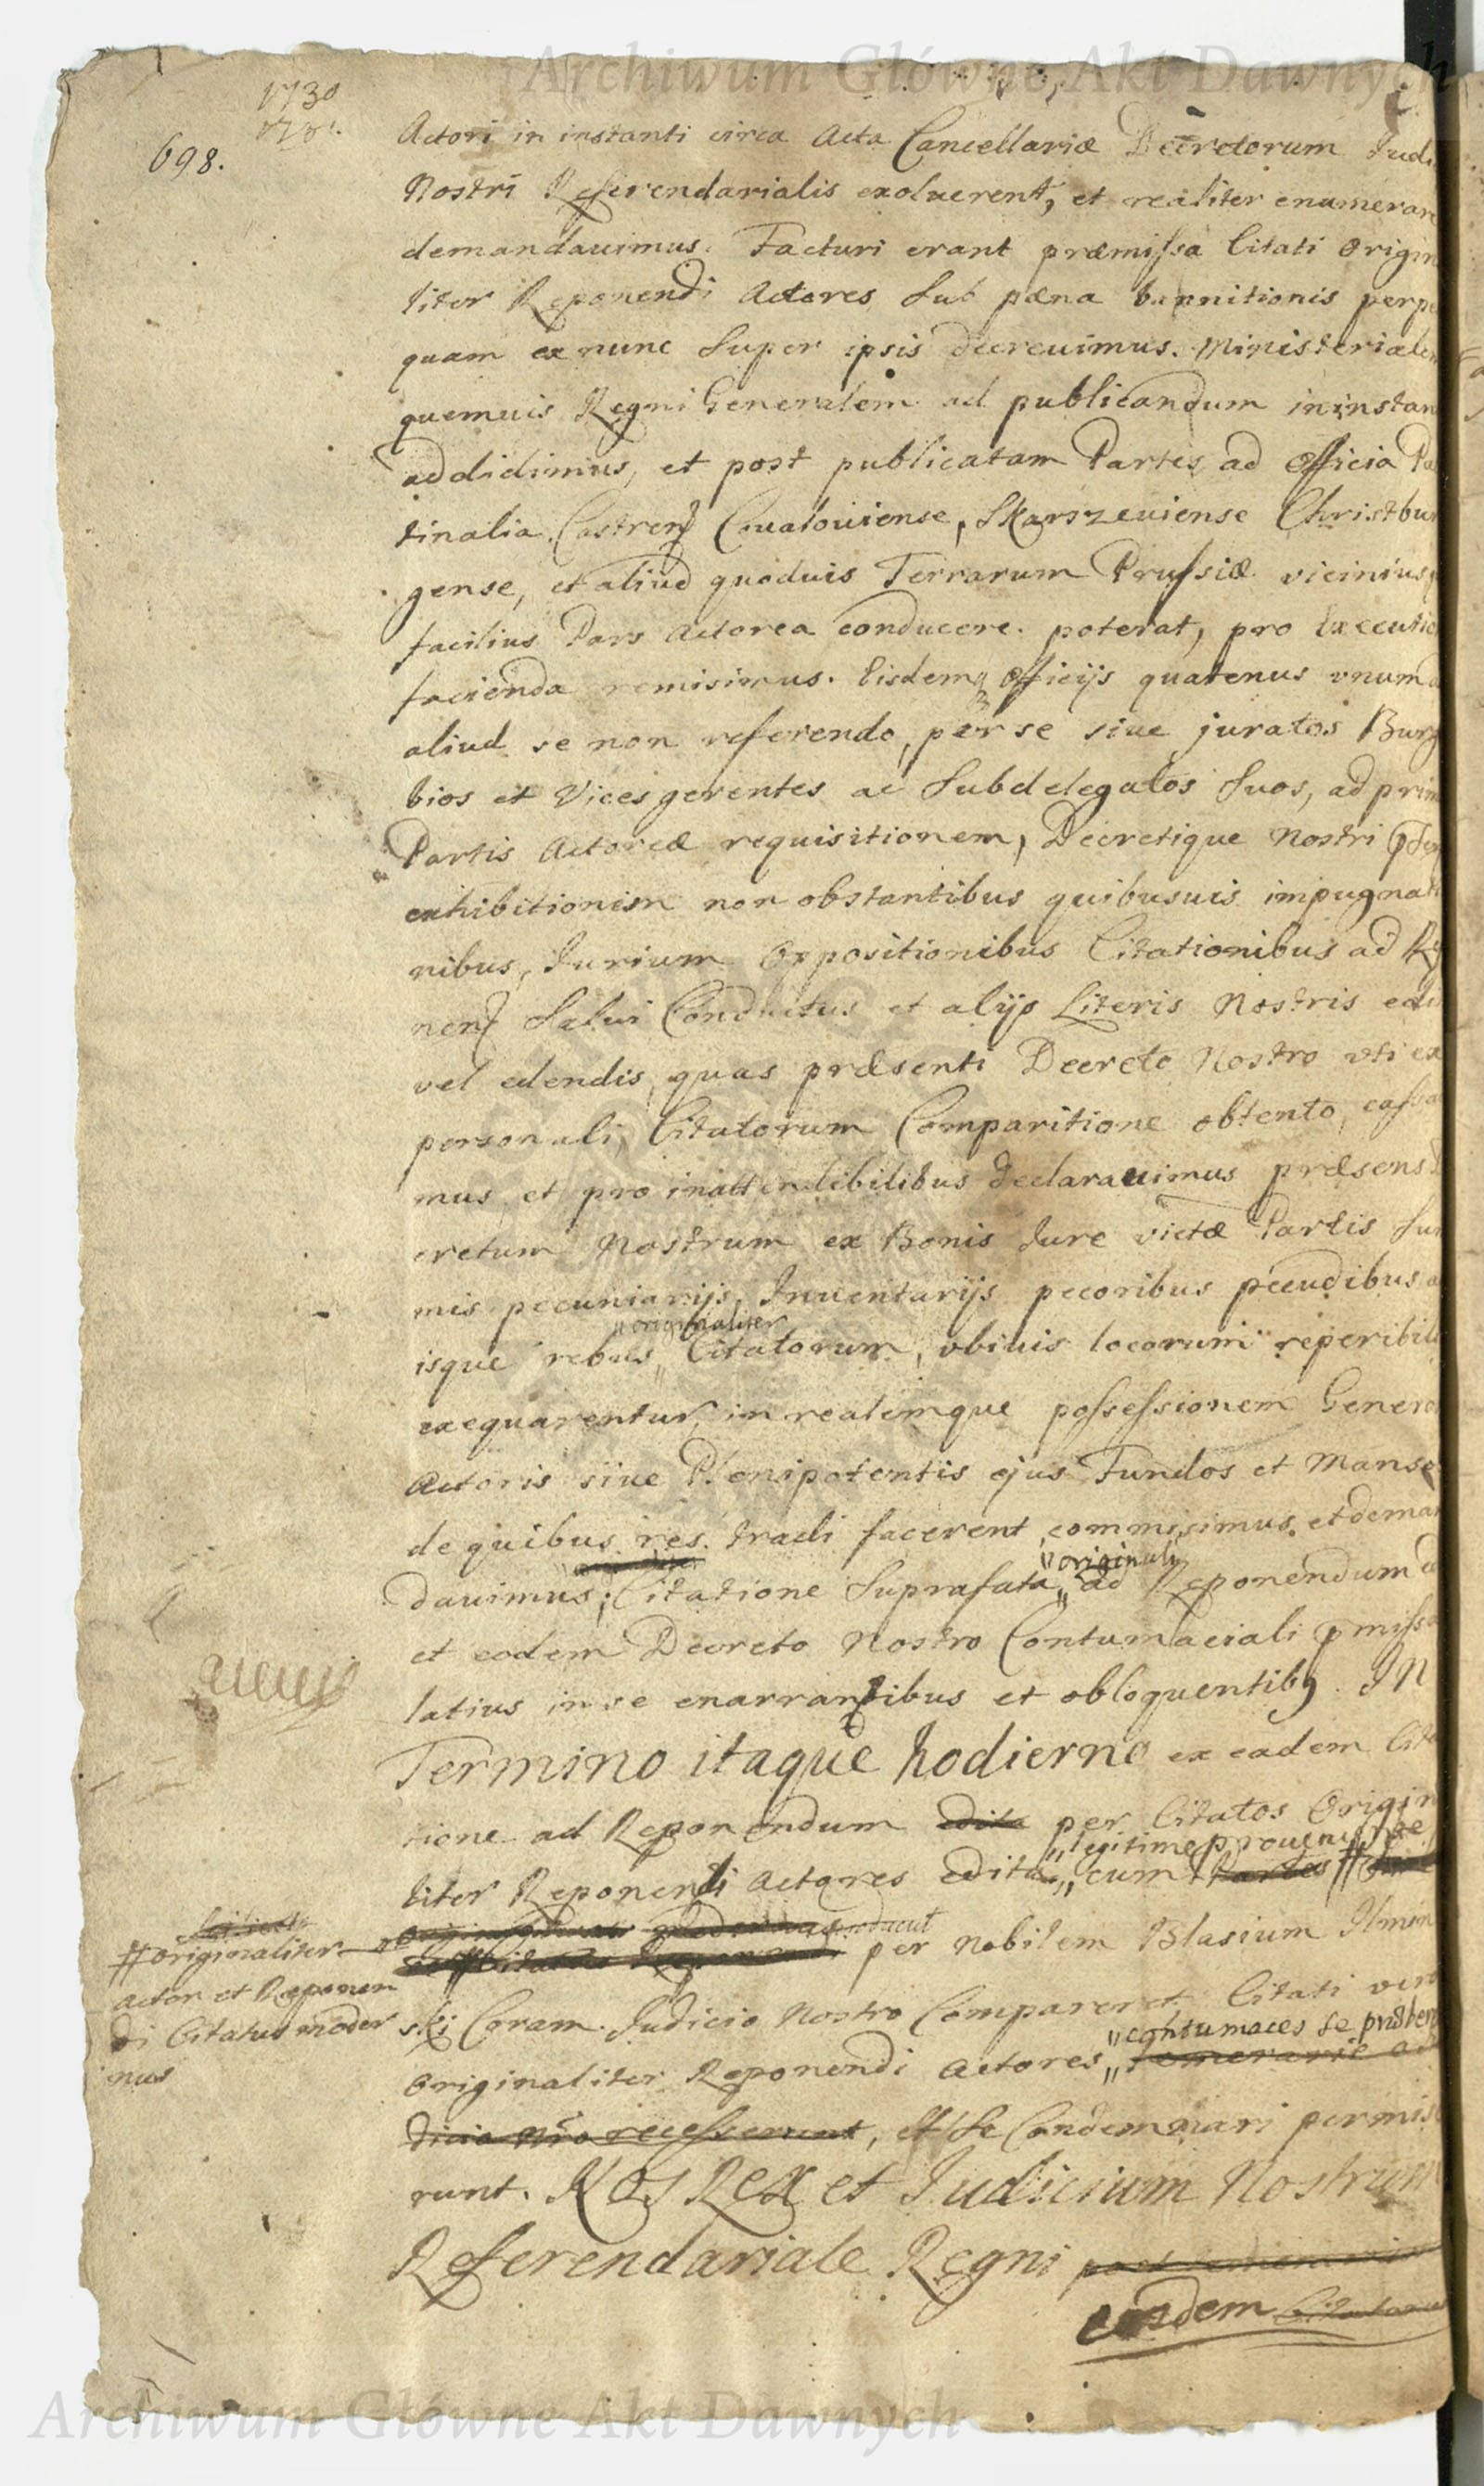 Archiwum Główne Akt Dawnych
1730
698.
Actori in instanti circa Acta Cancellariæ Decretorum Judi
Nostri Referendarialis exoluerent, et realiter enumerare
demandauimus. Facturi erant præmissa Citati Origin
liter Reponendi Actores sub pæna bannitionis perpe
quam ex nunc super ipsis decreuimus. Ministerialem
quemuis Regni Generalem ad publicandum in instan
addidimus, et post publicatam Partes ad Officia Pa
tinalia Castren Coualouiense, Skarszeuiense Christbur
gense, et aliud quoduis Terrarum Prussiæ vicinius,
facilius Pars Actorea conducere poterat, pro Executio
facienda remisimus. Eisdemq Officijs quatenus vnum
aliud se non referendo, per se siue juratos Burg
bios et Vices gerentes ac Subdelegatos suos, ad prim
Partis Actoreæ requisitionem, Decretique Nostri
exhibitionem non obstantibus quibusuis impugnati
nibus, Jurium Oppositionibus Citationibus ad Reg
nen Salui Conductus et alijs Literis Nostris edi
vel edendis, quas præsenti Decreto Nostro vti ex
personali Citatorum Comparitione obtento, cassa
mus et pro inattendibilibus declarauimus præsens
cretum Nostrum ex Bonis Jure victæ Partis Sum
mis pecuniarijs, Inuentarijs pecoribus pecudibus a
"originaliter
isque rebus" Citatorum, vbiuis locorum reperibili
exequarentur, in realemque possessionem Genero
Actoris siue Plenipotentis ejus Fundos et Manso
de quibus res. tradi facerent commisimus. et deman
"originali
dauimus; Citatione Suprafata" ad Reponendum
et eodem Decreto Nostro Contumaciali pmissa
latius in se enarrantibus et obloquentibq. IN
Termino itaque hodierno ex eadem Cita
tione ad Reponendum edita per Citatos Origin
"legitime proueniente
liter Reponendi Actores edita" cum Partes #
per Nobilem Blasium
#originaliter
actor et Reponen
di Citatus moder
nus
ski Coram Judicio Nostro Compareret Citati vero
"contumaces se præben
Originaliter Reponendi Actores" temerarie
dicio Nro recesserunt, et se Condemnari permise
runt. Nos Rex et Judicium Nostrum
Referendariale Regni
eosdem
Archiwum Główne Akt Dawnych